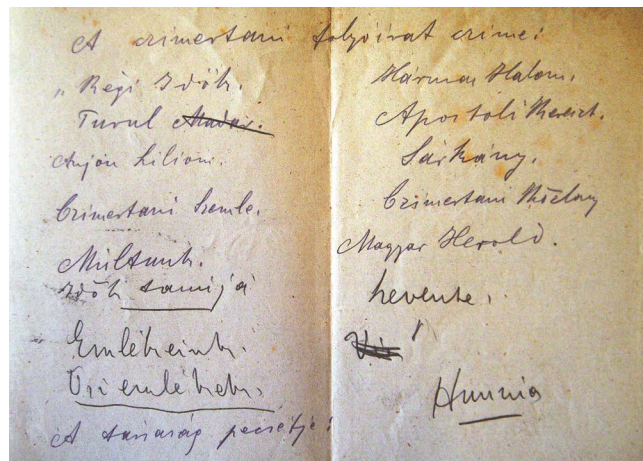 A czimertani folyóirat czime:
„Régi Idők.
Turul Madár.
Anjou Liliom.
Czimertani Szemle.
Múltunk.
Idők tanúja
Emlékeink.
Ősi emlékek.
A társaság pecsétje:
Hármas Halom.
Apostoli Kereszt.
Sárkány.
Czimertani Közlöny
Magyar Herold.
Levente.
Hunnia